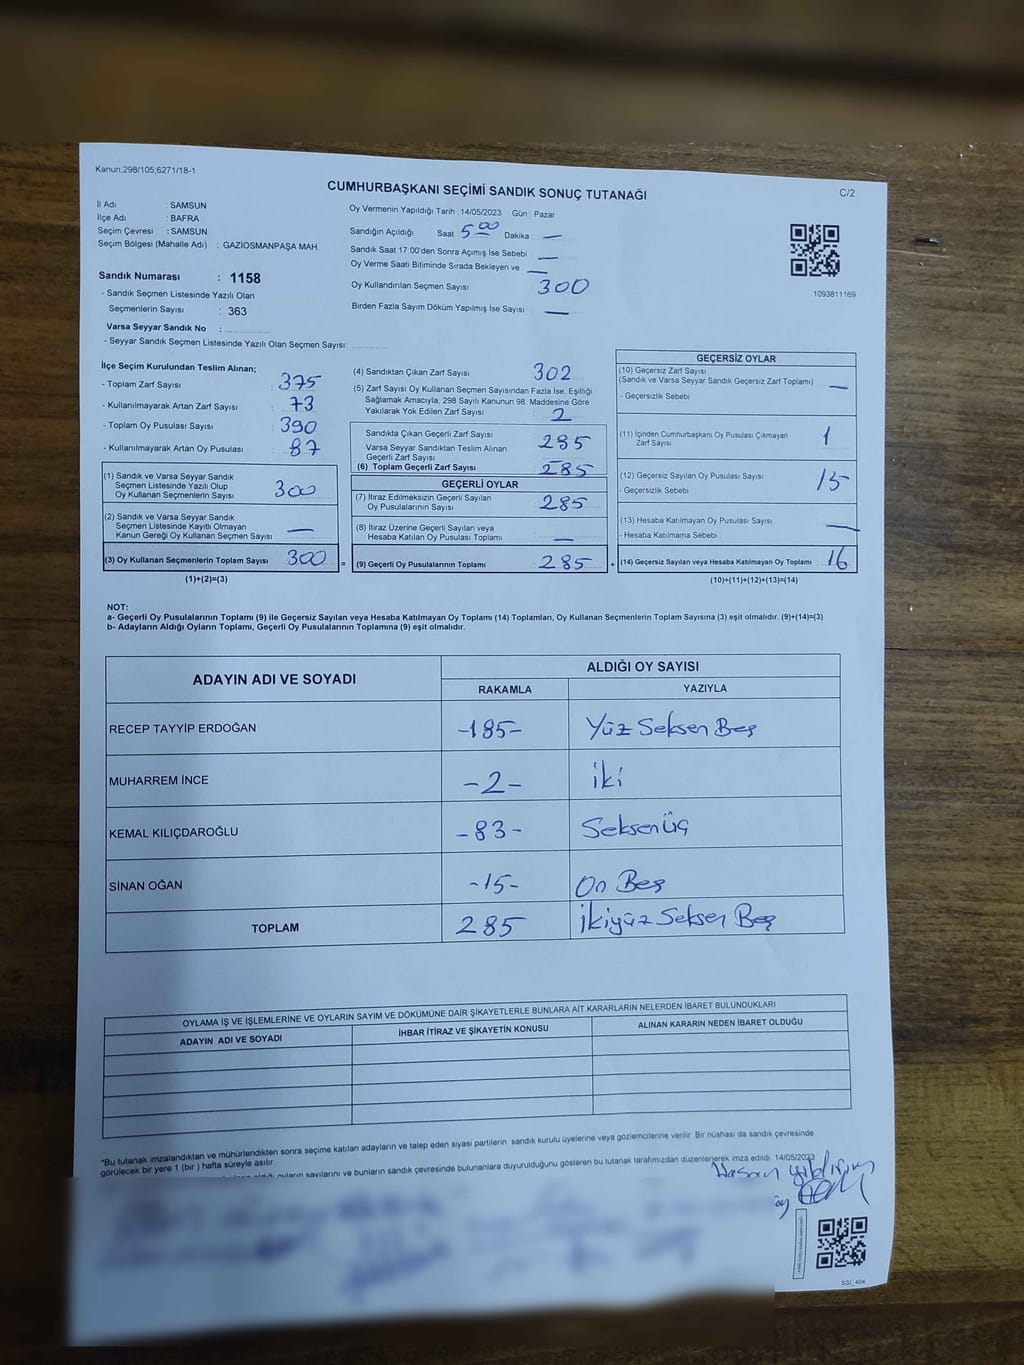 Kanun:298/105;6271/18-1
CUMHURBAŞKANI SEÇİMİ SANDIK SONUÇ TUTANAĞI
C/2
İl Adı : SAMSUN
İlçe Adı : BAFRA
Seçim Çevresi : SAMSUN
Seçim Bölgesi (Mahalle Adı) : GAZİOSMANPAŞA MAH.
Sandık Numarası : 1158
- Sandık Seçmen Listesinde Yazılı Olan
Seçmenlerin Sayısı : 363
Varsa Seyyar Sandık No :
- Seyyar Sandık Seçmen Listesinde Yazılı Olan Seçmen Sayısı:
Oy Vermenin Yapıldığı Tarih :14/05/2023 Gün : Pazar
Sandığın Açıldığı Saat 5.00 Dakika : —
Sandık Saat 17:00'den Sonra Açımış İse Sebebi : —
Oy Verme Saati Bitiminde Sırada Bekleyen ve —
Oy Kullandırılan Seçmen Sayısı 300
Birden Fazla Sayım Döküm Yapılmış İse Sayısı : —
1093811169
İlçe Seçim Kurulundan Teslim Alınan;
- Toplam Zarf Sayısı : 375
- Kullanılmayarak Artan Zarf Sayısı : 73
- Toplam Oy Pusulası Sayısı : 390
- Kullanılmayarak Artan Oy Pusulası : 87
(1) Sandık ve Varsa Seyyar Sandık
Seçmen Listesinde Yazılı Olup
Oy Kullanan Seçmenlerin Sayısı 300
(2) Sandık ve Varsa Seyyar Sandık
Seçmen Listesinde Kayıtlı Olmayan
Kanun Gereği Oy Kullanan Seçmen Sayısı : —
(3) Oy Kullanan Seçmenlerin Toplam Sayısı 300 =
(1)+(2)=(3)
(4) Sandıktan Çıkan Zarf Sayısı 302
(5) Zarf Sayısı Oy Kullanan Seçmen Sayısından Fazla İse, Eşitliği
Sağlamak Amacıyla, 298 Sayılı Kanunun 98. Maddesine Göre
Yakılarak Yok Edilen Zarf Sayısı : 2
Sandıkta Çıkan Geçerli Zarf Sayısı 285
Varsa Seyyar Sandıktan Teslim Alınan
Geçerli Zarf Sayısı
(6) Toplam Geçerli Zarf Sayısı 285
GEÇERLİ OYLAR
(7) İtiraz Edilmeksizin Geçerli Sayılan
Oy Pusulalarının Sayısı 285
(8) İtiraz Üzerine Geçerli Sayılan veya
Hesaba Katılan Oy Pusulası Toplamı —
(9) Geçerli Oy Pusulalarının Toplamı 285 +
GEÇERSİZ OYLAR
(10) Geçersiz Zarf Sayısı
(Sandık ve Varsa Seyyar Sandık Geçersiz Zarf Toplamı) —
- Geçersizlik Sebebi
(11) İçinden Cumhurbaşkanı Oy Pusulası Çıkmayan
Zarf Sayısı 1
(12) Geçersiz Sayılan Oy Pusulası Sayısı 15
- Geçersizlik Sebebi
(13) Hesaba Katılmayan Oy Pusulası Sayısı —
- Hesaba Katılmama Sebebi
(14) Geçersiz Sayılan veya Hesaba Katılmayan Oy Toplamı 16
(10)+(11)+(12)+(13)=(14)
NOT:
a- Geçerli Oy Pusulalarının Toplamı (9) ile Geçersiz Sayılan veya Hesaba Katılmayan Oy Toplamı (14) Toplamları, Oy Kullanan Seçmenlerin Toplam Sayısına (3) eşit olmalıdır. (9)+(14)=(3)
b- Adayların Aldığı Oyların Toplamı, Geçerli Oy Pusulalarının Toplamına (9) eşit olmalıdır.
ADAYIN ADI VE SOYADI ALDIĞI OY SAYISI
RAKAMLA YAZIYLA
RECEP TAYYİP ERDOĞAN -185- Yüz Seksen Beş
MUHARREM İNCE -2- iki
KEMAL KILIÇDAROĞLU -83- Seksenüç
SİNAN OĞAN -15- On Beş
TOPLAM 285 İkiyüz Seksen Beş
OYLAMA İŞ VE İŞLEMLERİNE VE OYLARIN SAYIM VE DÖKÜMÜNE DAİR ŞİKAYETLERLE BUNLARA AİT KARARLARIN NELERDEN İBARET BULUNDUKLARI
ADAYIN ADI VE SOYADI İHBAR İTİRAZ VE ŞİKAYETİN KONUSU ALINAN KARARIN NEDEN İBARET OLDUĞU
*Bu tutanak imzalandıktan ve mühürlendikten sonra seçime katılan adayların ve talep eden siyasi partilerin sandık kurulu üyelerine veya gözlemcilerine verilir. Bir nüshası da sandık çevresinde
görülecek bir yere 1 (bir) hafta süreyle asılır.
oyların sayılarını ve bunların sandık çevresinde bulunanlara duyurulduğunu gösteren bu tutanak tarafımızdan düzenlenerek imza edildi. 14/05/2023
Hasan Yıldırım
SSI_404